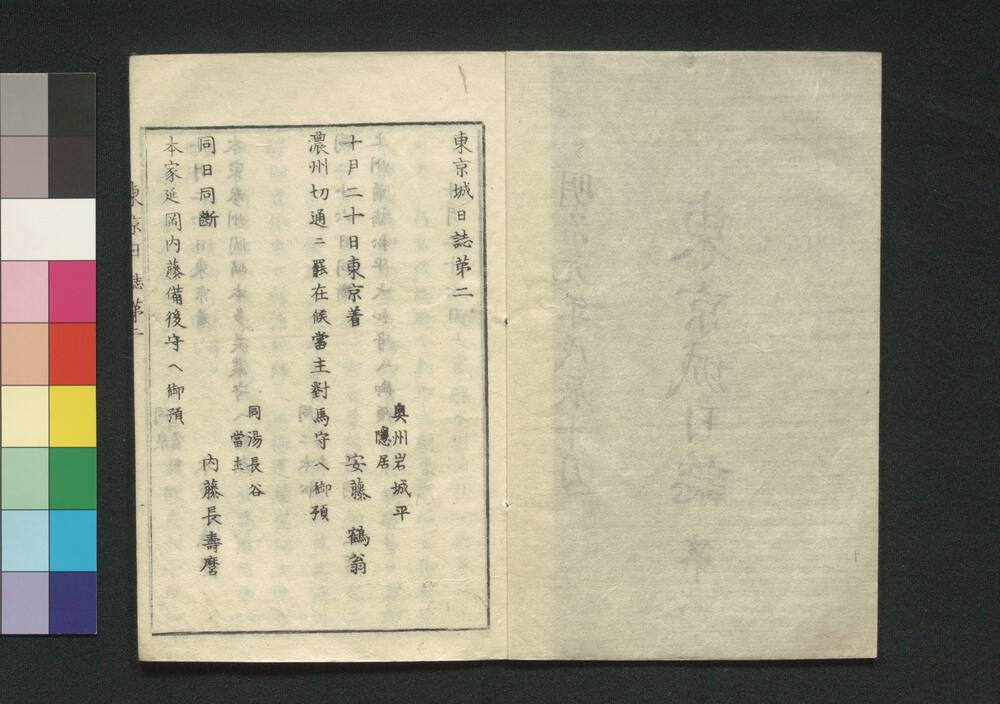 東京城日誌第二
奥州岩城平
隱居
十月二十日東京着 安藤 鶴翁
濃州切通ニ罷在候當主對馬守ヘ御預
同湯長谷
當主
同日同斷 内藤長壽麿
本家延岡内藤備後守ヘ御預
東京日誌第二